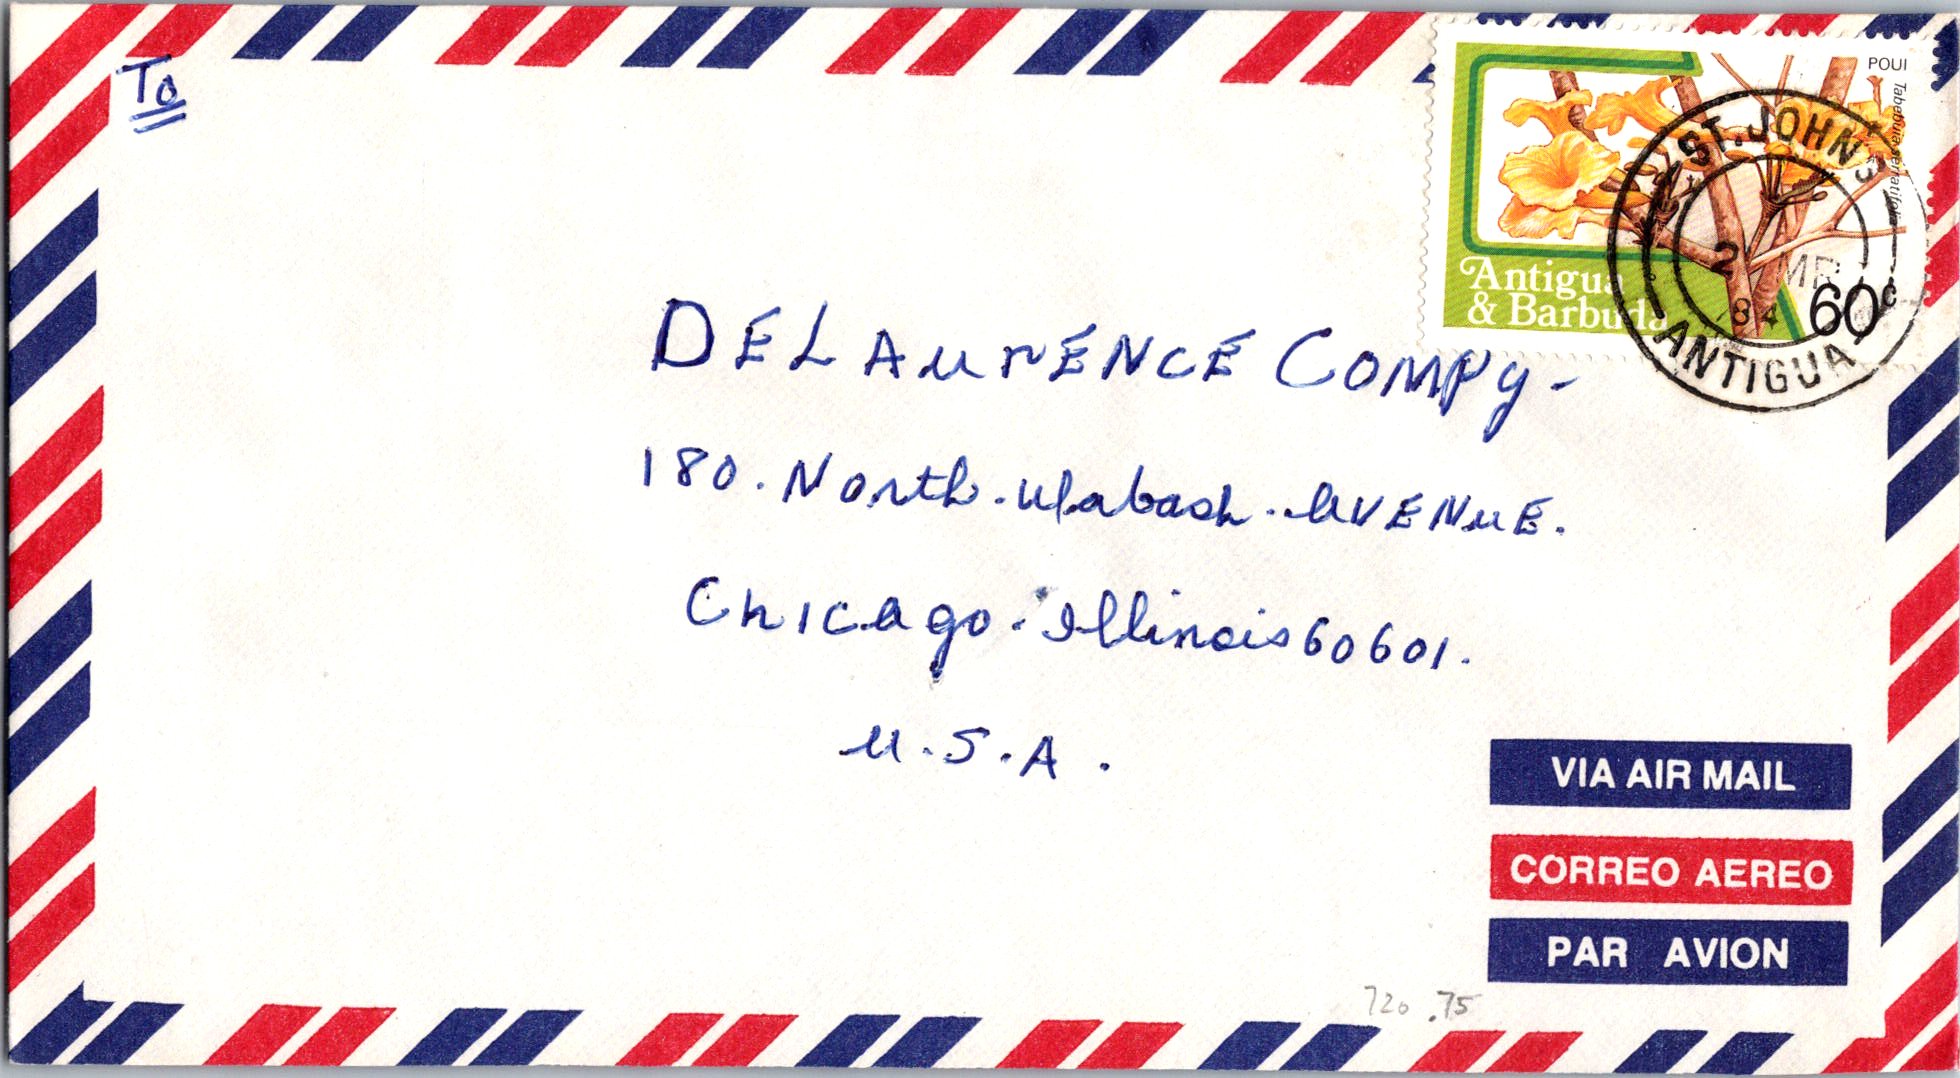 To
POUI
Tabebuia serratifolia
Antigua
& Barbuda
60c
ST. JOHN'S
2 MR
84
ANTIGUA
DELAurENCE COMPy-
180. North. Wabash. AVENUE.
Chicago. Illinois 60601.
U.S.A.
VIA AIR MAIL
CORREO AEREO
PAR AVION
720 .75